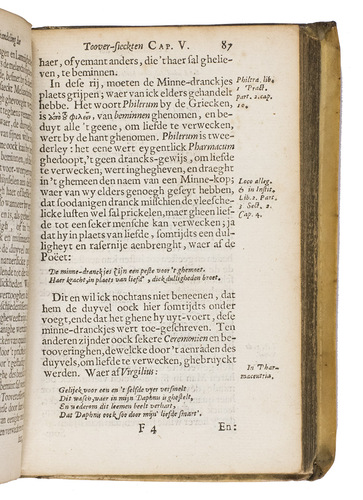 Toover-sieckten CAP. V. 87
haer, of yemant anders, die 't haer sal ghelie-
ven, te beminnen.
In dese rij, moeten de Minne-dranckjes
plaets grijpen; waer van ick elders gehandelt
hebbe. Het woort Philtrum by de Griecken,
is φιλεῖν, van beminnen ghenomen, en be-
duyt alle 't geene, om liefde te verwecken,
wert by de hant ghenomen. Philtrum is twee-
derley: het eene wert eygentlick Pharmacum
ghedoopt, 't geen drancks-gewijs, om liefde
te verwecken, wert inghegheven, en draeght
in 't ghemeen den naem van een Minne-kop;
waer van wy elders genoegh geseyt hebben,
dat soodanigen dranck misschien de vleesche-
licke lusten wel sal prickelen, maer gheen lief-
de tot een seker mensche kan verwecken; ja
dat hy in plaets van liefde, somtijdts een dul-
ligheyt en rasernije aenbrenght, waer af de
Poëet:
De minne-dranckjes zijn een peste voor 't ghemoet.
Haer kracht, in plaets van liefd', dick dulligheden broet.
Dit en wil ick nochtans niet beneenen, dat
hem de duyvel oock hier somtijdts onder
voegt, ende dat het ghene hy uyt-voert, dese
minne-dranckjes wert toe-geschreven. Ten
anderen zijnder oock sekere Ceremonien en be-
tooveringhen, dewelcke door 't aenraden des
duyvels, om liefde te verwecken, ghebruyckt
werden. Waer af Virgilius:
Gelijck voor een en 't selfde vyer versmelt
Dit wasen, waer in mijn Daphnis is ghestelt,
En wederom dit leemen beelt verhart,
Dat Daphnis oock soo door mijn' liefde smart.
F 4 En:
Philtra, lib.
1 Pract.
part. 2. cap.
10.
Loco alleg.
& in Instit.
Lib. 2. Part.
3 Sect. 2.
Cap. 4.
In Phar-
maceutria.